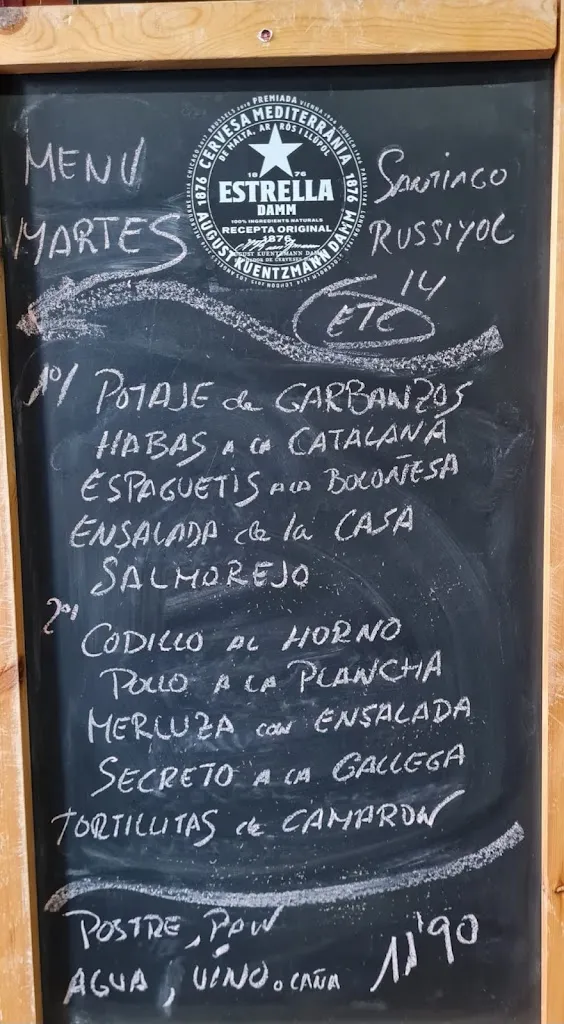 MENU
MARTES
CERVESA MEDITERRÀNIA
DE MALTA, ARRÒS I LLÚPOL
1876
1876
1876
ESTRELLA
DAMM
100% INGREDIENTS NATURALS
RECEPTA ORIGINAL
1876
AUGUST KUENTZMANN DAMM
SANTIAGO
RUSSIYOL
14
ETC
1º/ POTAJE de GARBANZOS
HABAS A LA CATALANA
ESPAGUETIS A LA BOLOÑESA
ENSALADA de la CASA
SALMOREJO
2º/
CODILLO AL HORNO
POLLO A LA PLANCHA
MERLUZA con ENSALADA
SECRETO A LA GALLEGA
TORTILLITAS de CAMARON
POSTRE, PAN
AGUA, VINO o CAÑA 11'90